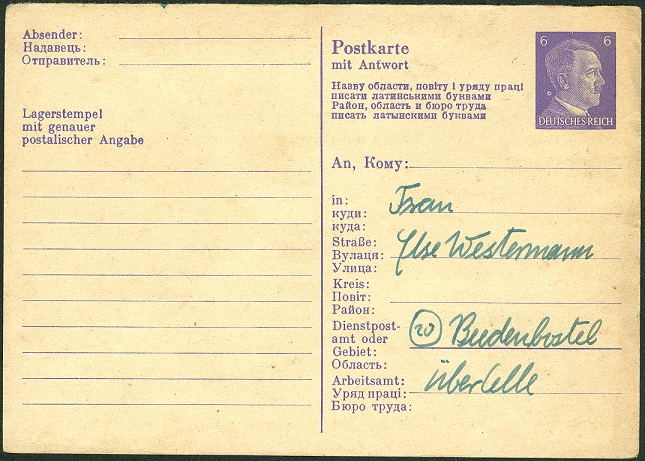 Absender:
Надавець:
Отправитель:
Lagerstempel
mit genauer
postalischer Angabe
Postkarte
mit Antwort
Назву области, повіту і уряду праці
писати латинськими буквами
Район, область и бюро труда
писать латынскими буквами
6 6
DEUTSCHES REICH
An, Кому:
in:
куди:
куда:
Frau
Straße:
Вулаця:
Улица:
Ilse Westermann
Kreis:
Повіт:
Район:
Dienstpost-
amt oder
Gebiet:
Область:
20 Beedenbostel
Arbeitsamt:
Уряд праці:
Бюро труда:
über Celle